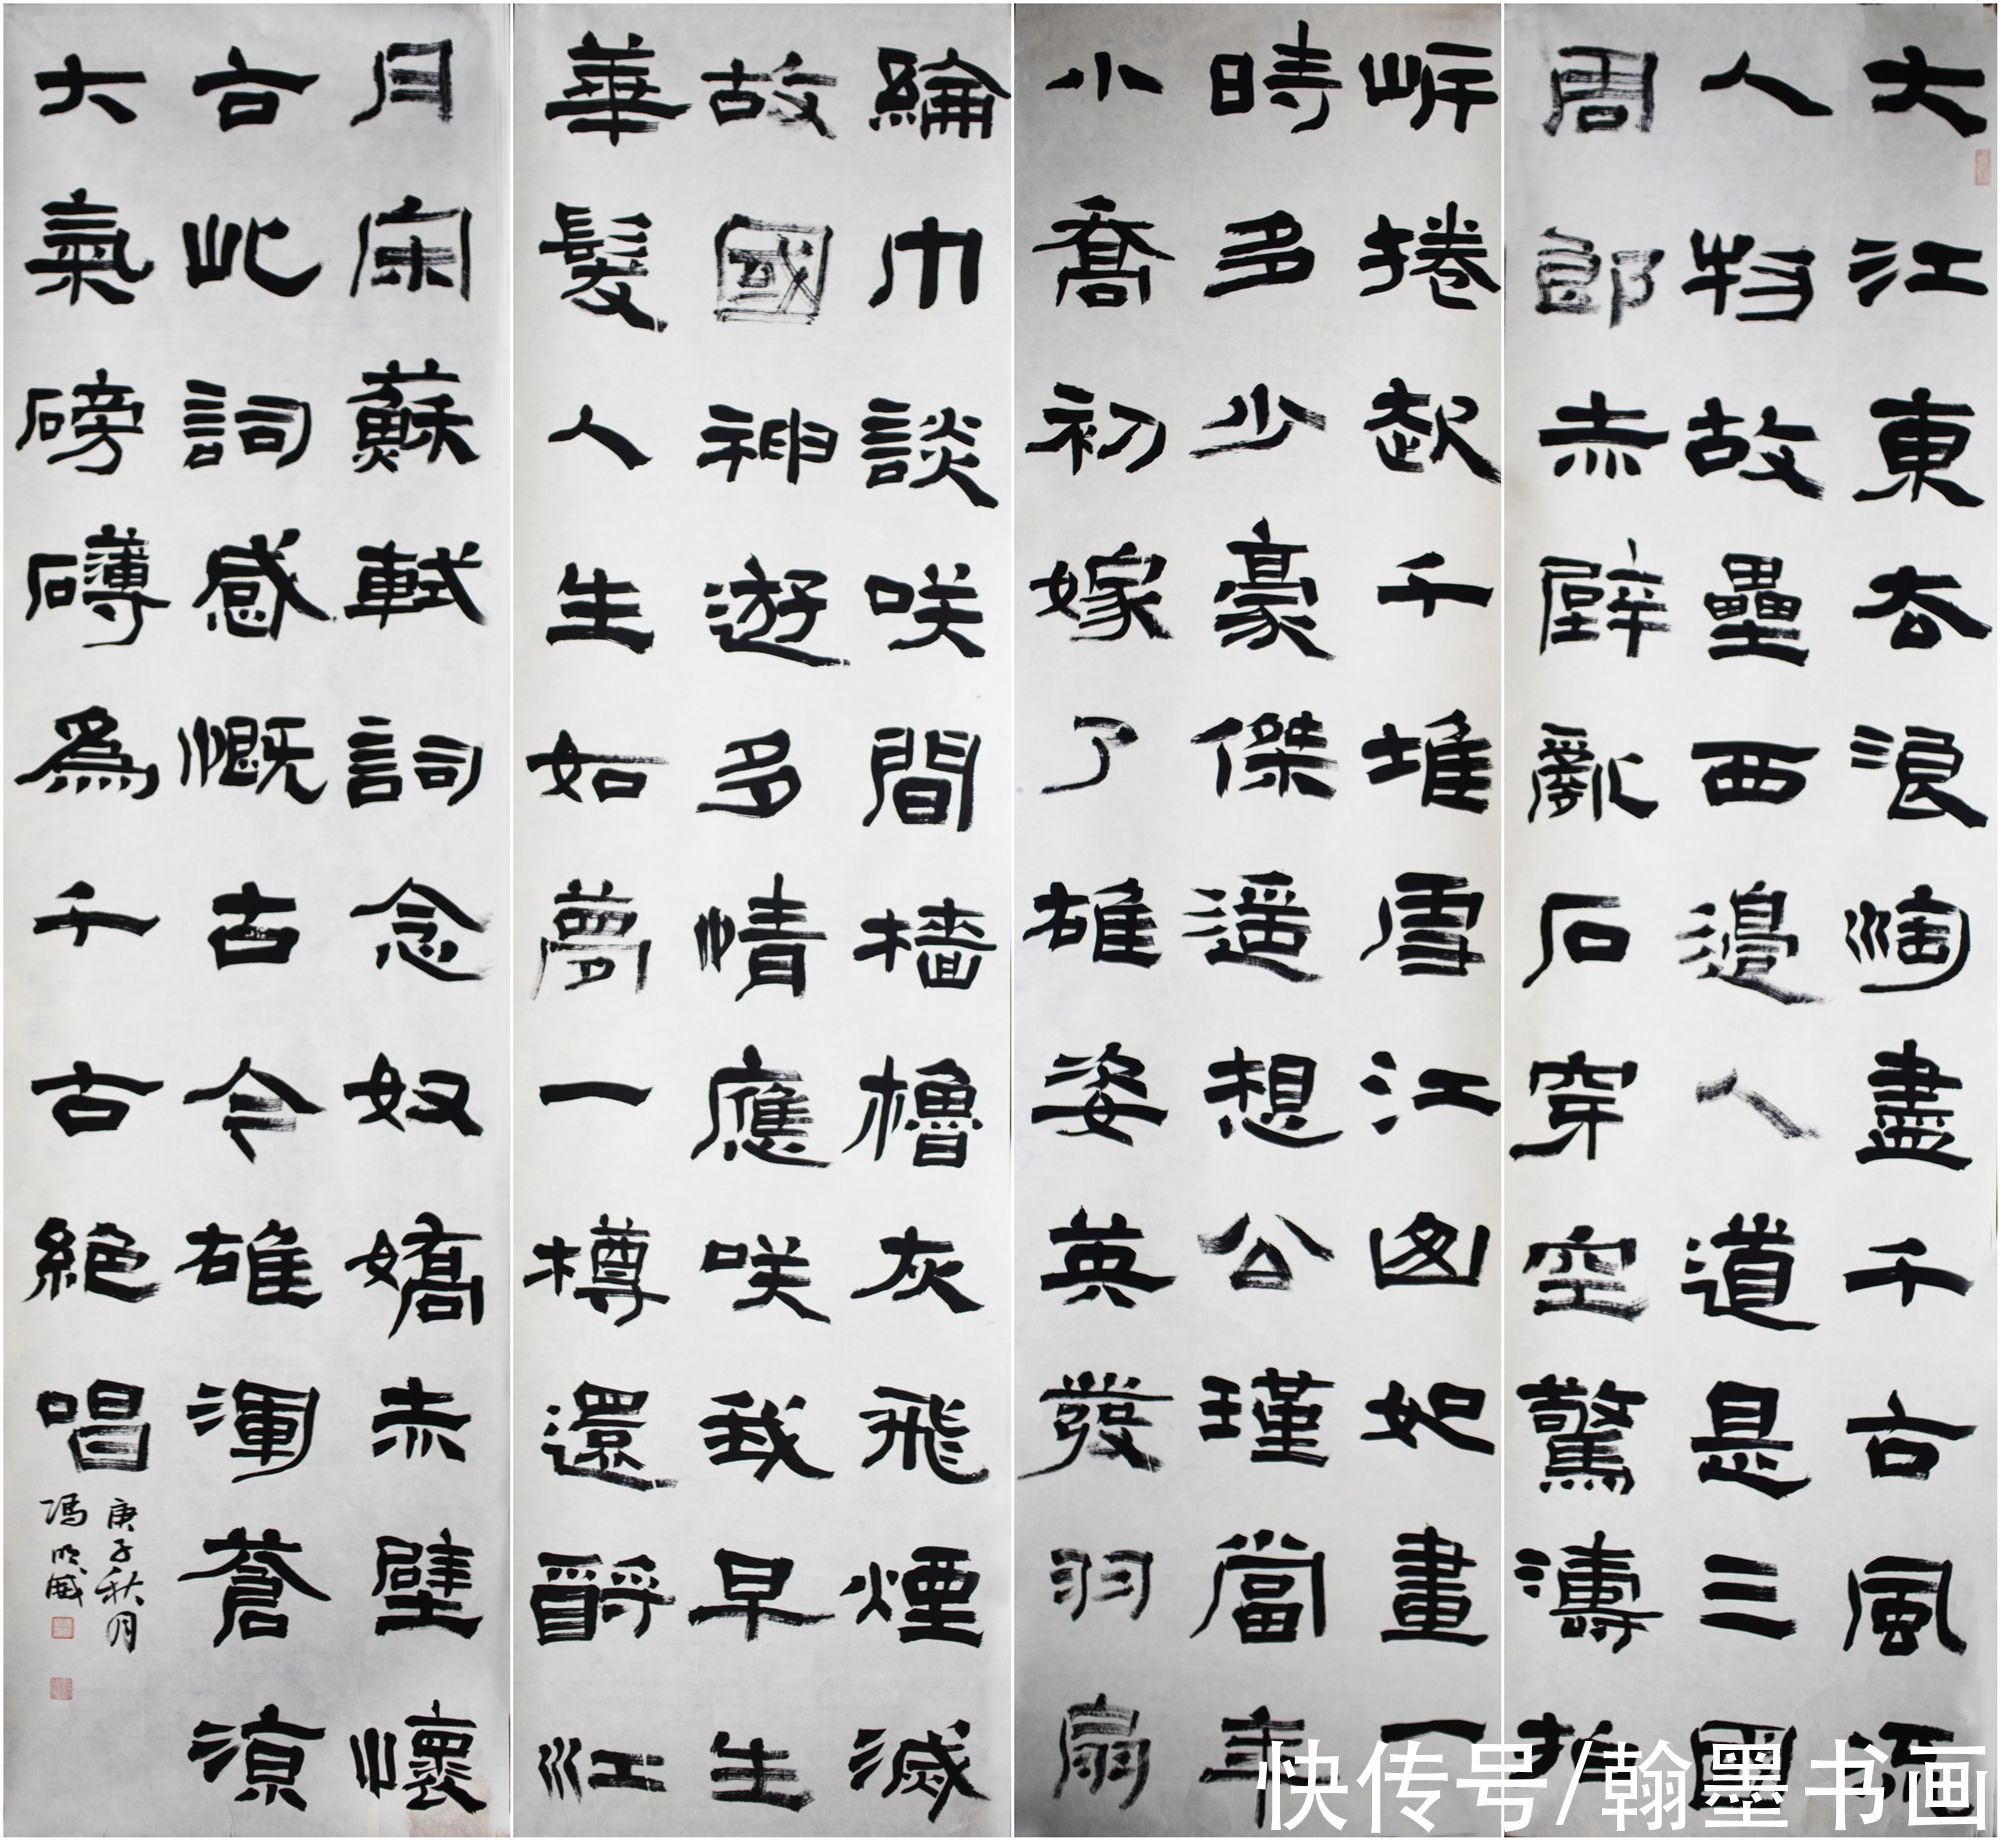 大江東去浪淘盡千古風流
人特故壘西邊人道是三國
周郎赤壁亂石穿空驚濤拍
岸捲起千堆雪江山如畫一
時多少豪傑遥想公瑾當年
小喬初嫁了雄姿英發羽扇
綸巾談咲間檣櫓灰飛煙滅
故國神遊多情應咲我早生
華髮人生如夢一樽還酹江
月 蘇軾詞念奴嬌赤壁懷
古此詞感慨古今雄渾蒼涼
大氣磅礴為千古絕唱
庚子秋月
馮
快传号/翰墨书画